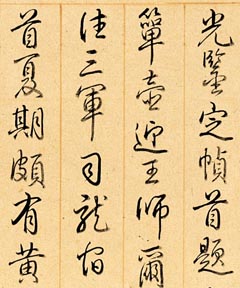 光鑒定幀首題
簞壺迎王師爾
佳三軍司龍㐫
首夏期頗有黃